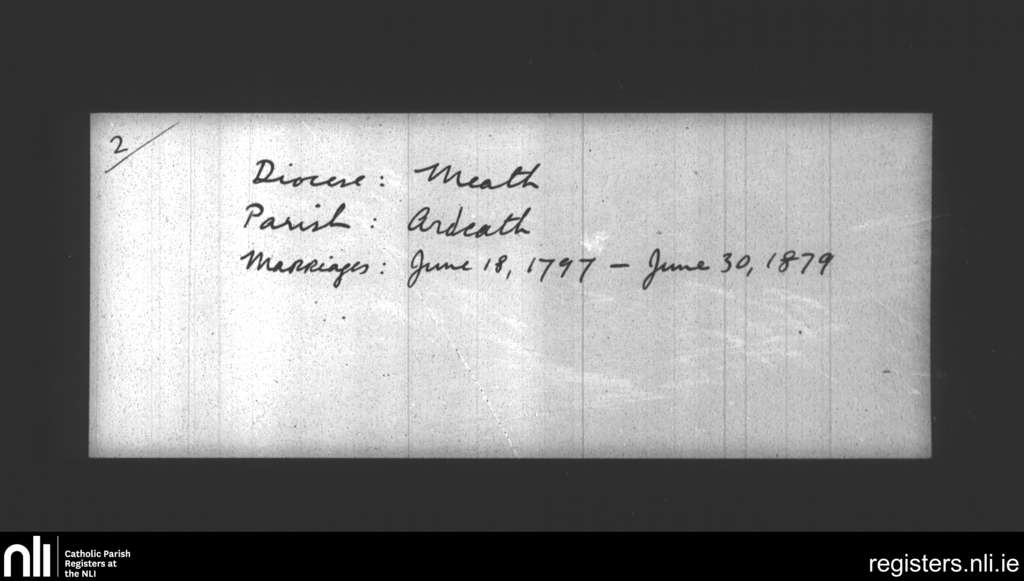 2
Diocese: Meath
Parish: Ardcath
Marriages: June 18, 1797 – June 30, 1879
nli
Catholic Parish
Registers at
the NLI
registers.nli.ie